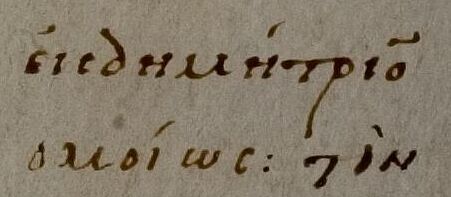 εἰςδημήτριο͂
ομοίως: τὶν